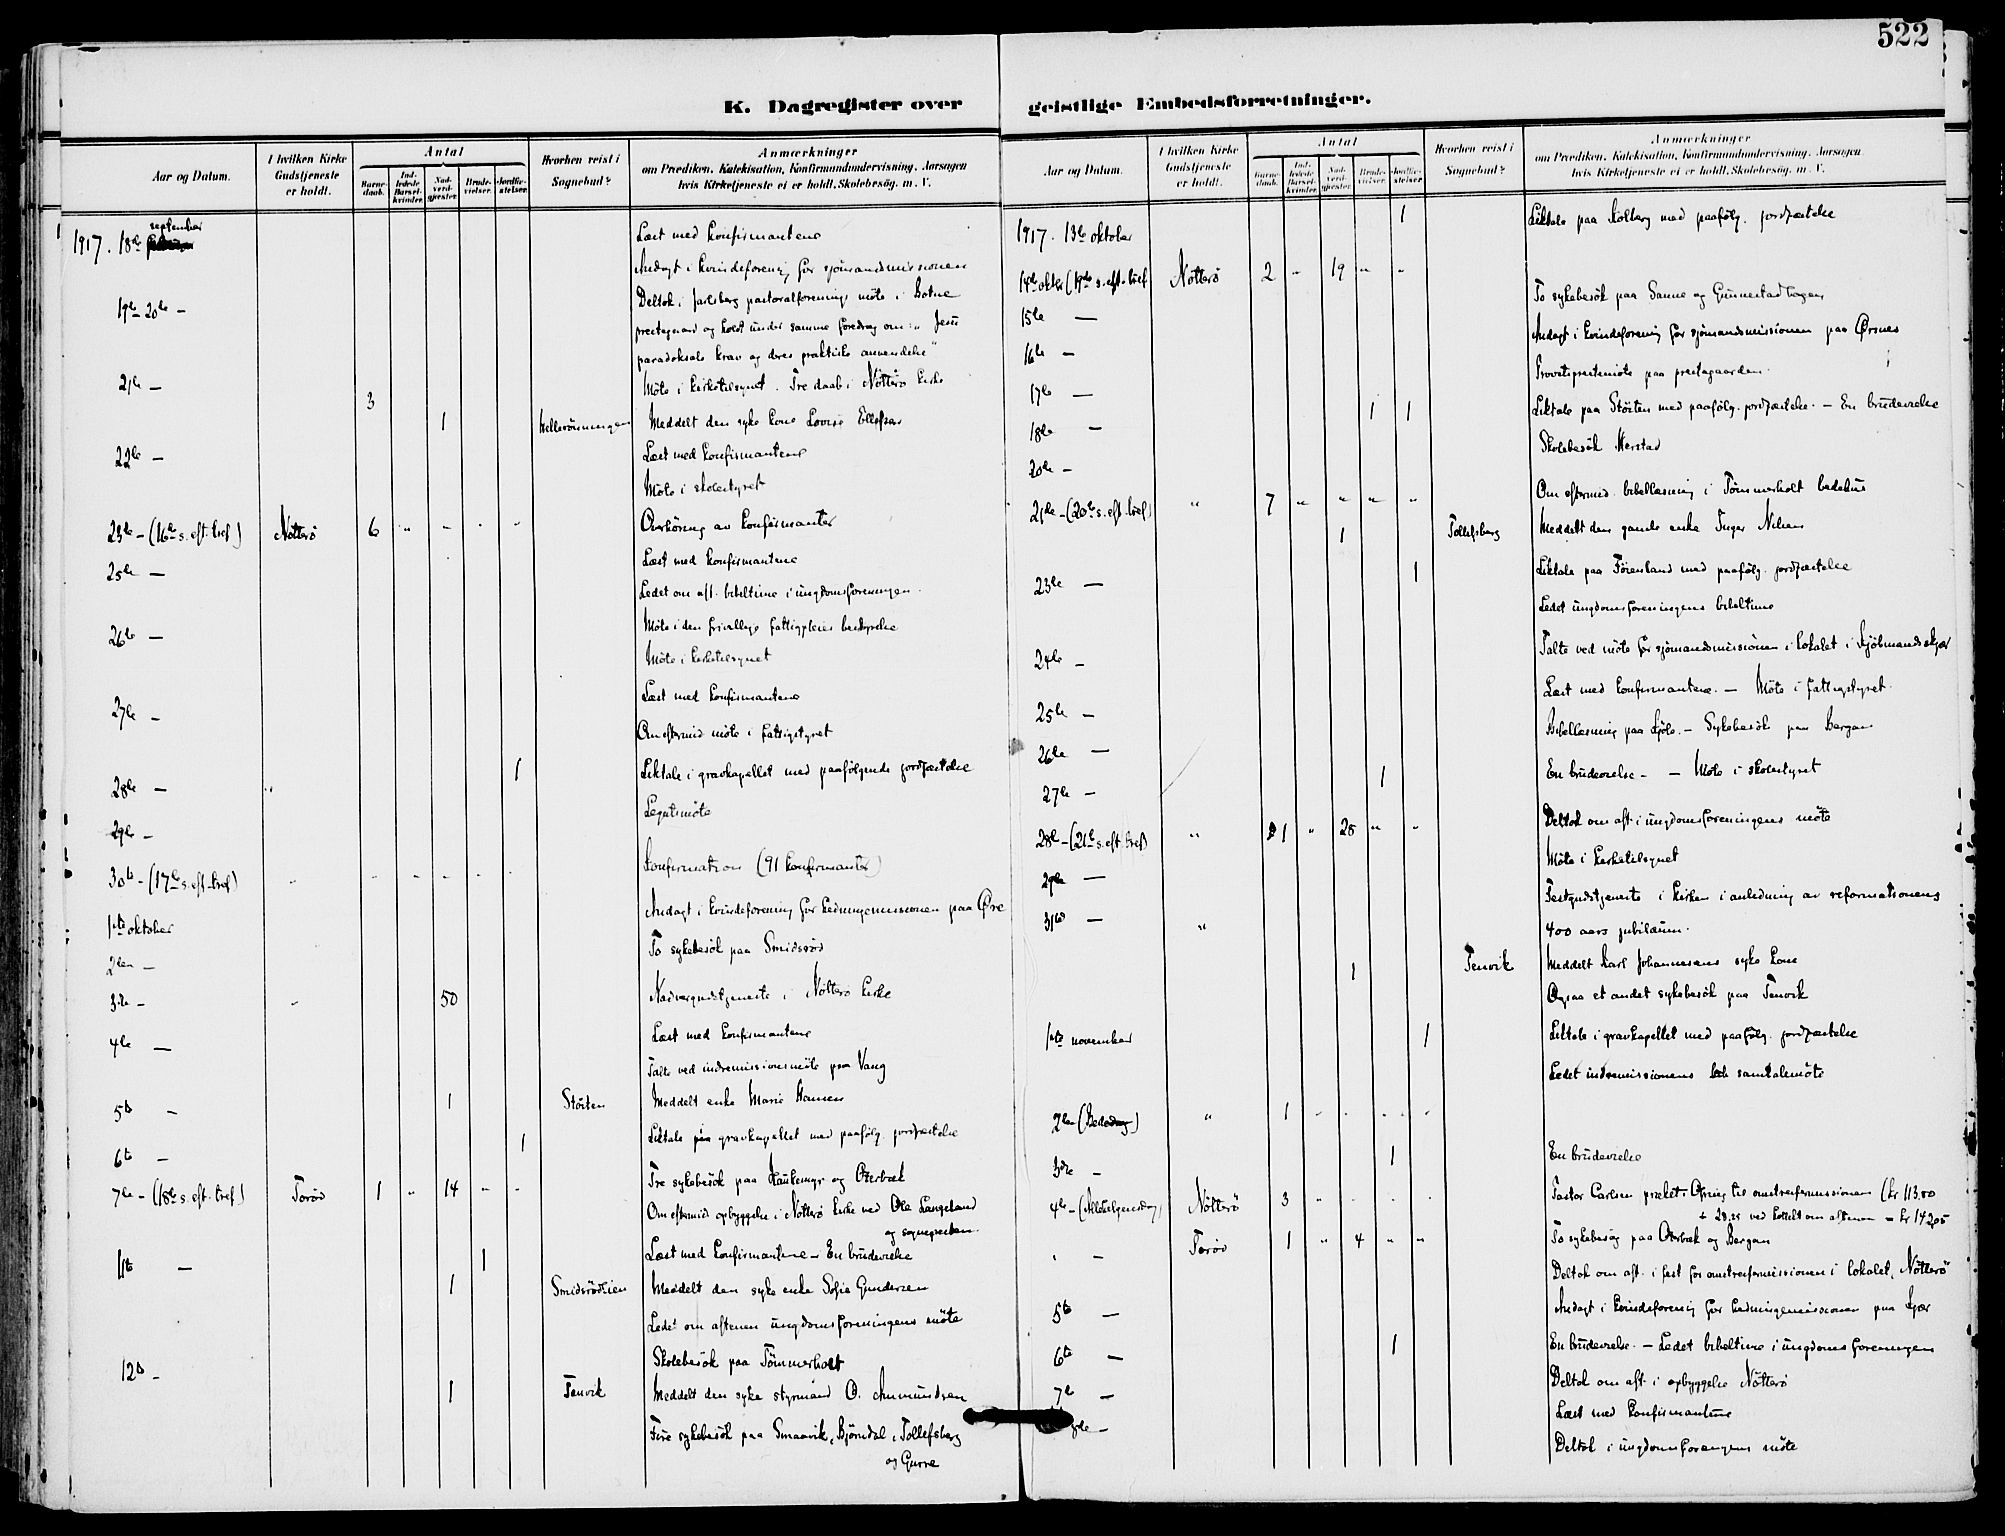 522
K. Dagregister over
geistlige Embedsforretninger.
Aar og Datum.
I hvilken Kirke Gudstjeneste er holdt.
Antal
Barne-daab.
Ind-ledede Barsel-kvinder.
Nad-verd-gjester.
Brude-vielser.
Jordfæ-stelser.
Hvorhen reist i Sognebud?
Anmærkninger
om Prædiken, Katekisation, Konfirmandundervisning, Aarsagen
hvis Kirketjeneste ei er holdt, Skolebesøg. m. V.
1917. 18de september Læst med konfirmantene
Andagt i kvindeforening for sjømandsmissionen
19de 20de - Deltok i Jarlsberg pastoralforenings møte i Botne
prestegaard og holdt under samme foredrag om: "Jesu
paradoksale krav og deres praktiske anvendelse"
21de - Møte i kirketilsynet. Tre daab i Nøtterø kirke
3
1 Meddelt den syke kone Lovise Ellefsen
22de - Læst med konfirmantene
Møte i skolestyret
23de - (16de s. eft. tref) Nøtterø 6 " - " " Overhøring av konfirmanter
25de - Læst med konfirmantene
Ledet om aft. bibeltime i ungdomsforeningen.
26de - Møte i den frivillige fattigpleies bestyrelse
Møte i kirketilsynet
27de - Læst med konfirmantene
Om eftermid møte i fattigstyret
28de - " 1 Liktale i gravkapellet med paafølgende jordfæstelse
29de - Legatsmøte
30te - (17de s. eft. tref) " - - - - - Konfirmation (91 konfirmanter)
1ste oktober Andagt i kvindeforening for hedningemissionen paa Øre
2den - To sykebesøk paa Smidsrød
3die - " 50 Nadvergudstjeneste i Nøtterø kirke
4de - Læst med konfirmantene
Talte ved indremissionsmøte paa Vang
5te - 1 Støiten Meddelt enke Marie Hansen
6te - 1 Liktale paa gravkapellet med paafølg. jordfæstelse
7de - (18de s. eft. tref) Torød 1 " 14 " " Tre sykebesøk paa Haukemyr og Oterbæk
Om eftermid opbyggelse i Nøtterø kirke ved Ole Langeland
og sognepresten
11te - 1 Læst med konfirmantene - En brudevielse
1 Smidsrødveien Meddelt den syke enke Sofie Gundersen
Ledet om aftenen ungdomsforeningens møte
12te - Skolebesøk paa Tømmerholt
1 Tenvik Meddelt den syke styrmand O. Amundsen
Fire sykebesøk paa Smaavik, Bjørndal, Tollefsberg
og Gurre
Aar og Datum.
I hvilken Kirke Gudstjeneste er holdt.
Antal
Barne-daab.
Ind-ledede Barsel-kvinder.
Nad-verd-gjester.
Brude-vielser.
Jordfæ-stelser.
Hvorhen reist i Sognebud?
Anmærkninger
om Prædiken, Katekisation, Konfirmandundervisning, Aarsagen
hvis Kirketjeneste ei er holdt, Skolebesøg. m. V.
1917. 13de oktober 1 Liktale paa Kolberg med paafølg. jordfæstelse
14de oktbr (19de s. eft. tref Nøtterø 2 " 19 " "
15de - To sykebesøk paa Sanne og Gunnestadhagen
16de - Andagt i kvindeforening for sjømandsmissionen paa Ørsnes
17de - Provstiprestemøte paa prestegaarden.
18de - 1 1 Liktale paa Støiten med paafølg. jordfæstelse. - En brudevielse
20de - Skolebesøk Herstad
21de - (20de s. eft. tref) " 7 " " " " Om eftermid. bibellæsning i Tømmerholt bedehus
1 Tollefsberg Meddelt den gamle enke Inger Nilsen
23de - 1 Liktale paa Føienland med paafølg. jordfæstelse
Ledet ungdomsforeningens bibeltime
24de - Talte ved møte for sjømandsmissionen i lokalet i Kjøbmandskjær
25de - Læst med konfirmantene. - Møte i fattigstyret.
26de - Bibellæsning paa Skjøle. - Sykebesøk paa Bergan
27de - 1 En brudevielse - - Møte i skolestyret
28de - (21de s. eft. tref) " 1 " 28 " " Deltok om aft. i ungdomsforeningens møte
29de - Møte i kirketilsynet
31te - " Festgudstjeneste i kirken i anledning av reformationens
400 aars jubilæum.
1 Tenvik Meddelt Karl Johannesens syke kone
Ogsaa et andet sykebesøk paa Tenvik
1ste november 1 Liktale i gravkapellet med paafølg. jordfæstelse
Ledet indremissionens samtalemøte
2den (Bededag) " 1 - - - -
3die - 1 En brudevielse
4de - (Allehelgensdag) Nøtterø 3 " - - - Pastor Carlsen præket. Ofring til omstreifermissionen (kr 113.80
+ 28,25 ved holdt om aftenen = kr 142,05
" - Torød 1 " 4 " " To sykebesøg paa Oterbæk og Bergan
Deltok om aft. i fest for omstreifermissionen i lokalet, Nøtterø
5te - Andagt i kvindeforening for hedningemissionen paa Skjær
6te - 1 En brudevielse. - Ledet bibeltime i ungdomsforeningen
7de - Deltok om aft. i opbyggelse Nøtterø
8de - Læst med konfirmantene
Deltok i ungdomsforeningens møte